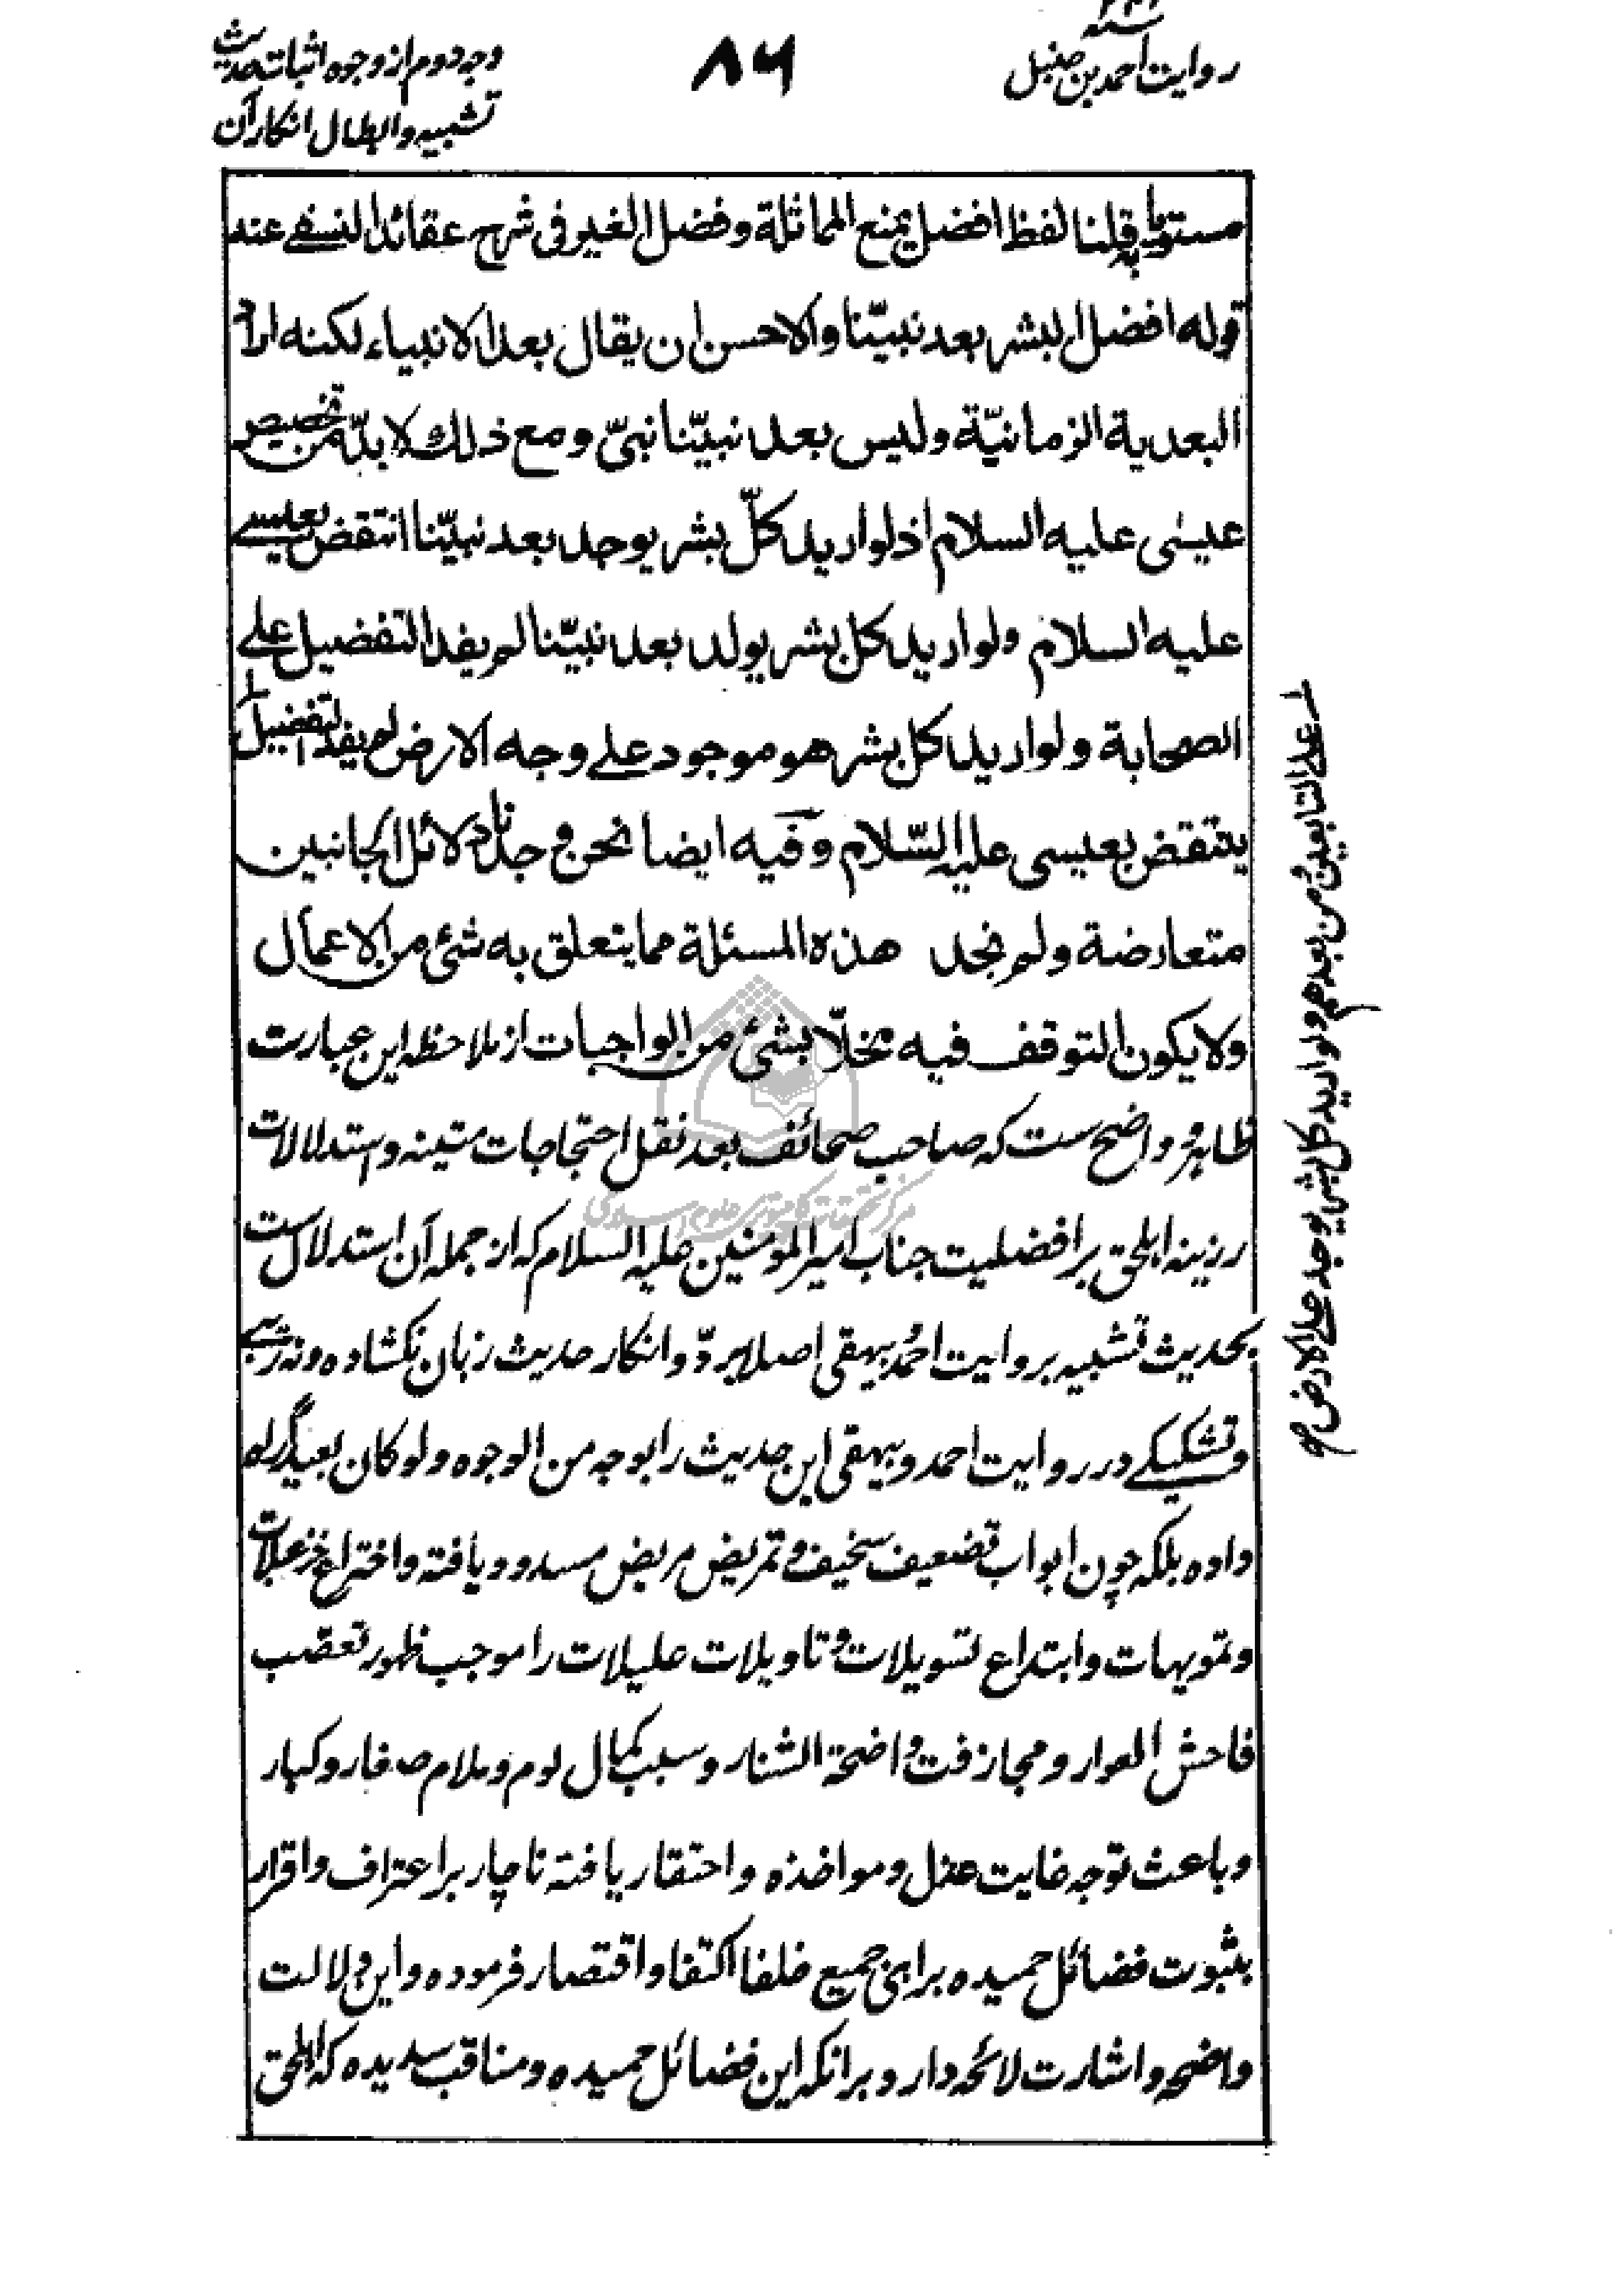 روایت احمد بن حنبل
۸۶
وجه دوم از وجوه اثبات حدیث
تشبیه و ابطال انکار آن
مستویا به قلنا لفظ افضل یمنع المماثلة وفضل الغیر فی شرح عقائد النسفی عند
قوله افضل البشر بعد نبیّنا والاحسن ان یقال بعد الانبیاء لکنه اراد
البعدیة الزمانیّة ولیس بعد نبیّنا نبیّ ومع ذلك لا بدّ من تخصیص
عیسٰی علیه السلام اذ لو ارید کلّ بشر یوجد بعد نبیّنا انتقض بعیسے
علیه السلام ولو ارید کل بشر یولد بعد نبیّنا لم یفد التفضیل علی
الصحابة ولو ارید کل بشر هو موجود علے وجه الارض لم یفد التفضیل
ینتقض بعیسی علیه السّلام وفیه ایضا نحن وجدنا دلائل الجانبین
متعارضة ولم نجد هذه المسئلة مما یتعلق به شئ من الاعمال
ولا یکون التوقف فیه مخلّا بشئ من الواجبات از ملاحظه این عبارت
ظاهر و واضح ست که صاحب صحائف بعد نقل احتجاجات متینه و استدلالات
رزینه اهلحق بر افضلیت جناب امیرالمومنین علیه السلام که از جمله آن استدلال ست
بحدیث تشبیه بروایت احمد و بیهقی اصلا برد و انکار حدیث زبان نکشاده و نه ریبے
و تشکیکے در روایت احمد و بیهقی این حدیث را بوجه من الوجوه ولو کان بعیدا راه
داده بلکه چون ابواب تضعیف سخیف و تمریض مریض مسدود یافته و اختراع خزعبلات
و تمویهات و ابتداع تسویلات و تاویلات علیلات را موجب ظهور تعصب
فاحش العوار و مجازفت واضحة الشنار و سبب کمال لوم و ملام صغار و کبار
و باعث توجه غایت عذل و مواخذه و احتقار یافته ناچار بر اعتراف و اقرار
بثبوت فضائل حمیده برای جمیع خلفا اکتفا و اقتصار فرموده و این دلالت
واضحه و اشارت لائحه دارد برانکه این فضائل حمیده و مناقب سدیده که اهلحق
علی التابعین ومن بعدهم ولو ارید کل بشر یوجد علی الارض صح
مرکز تحقیقات کامپیوتری علوم اسلامی